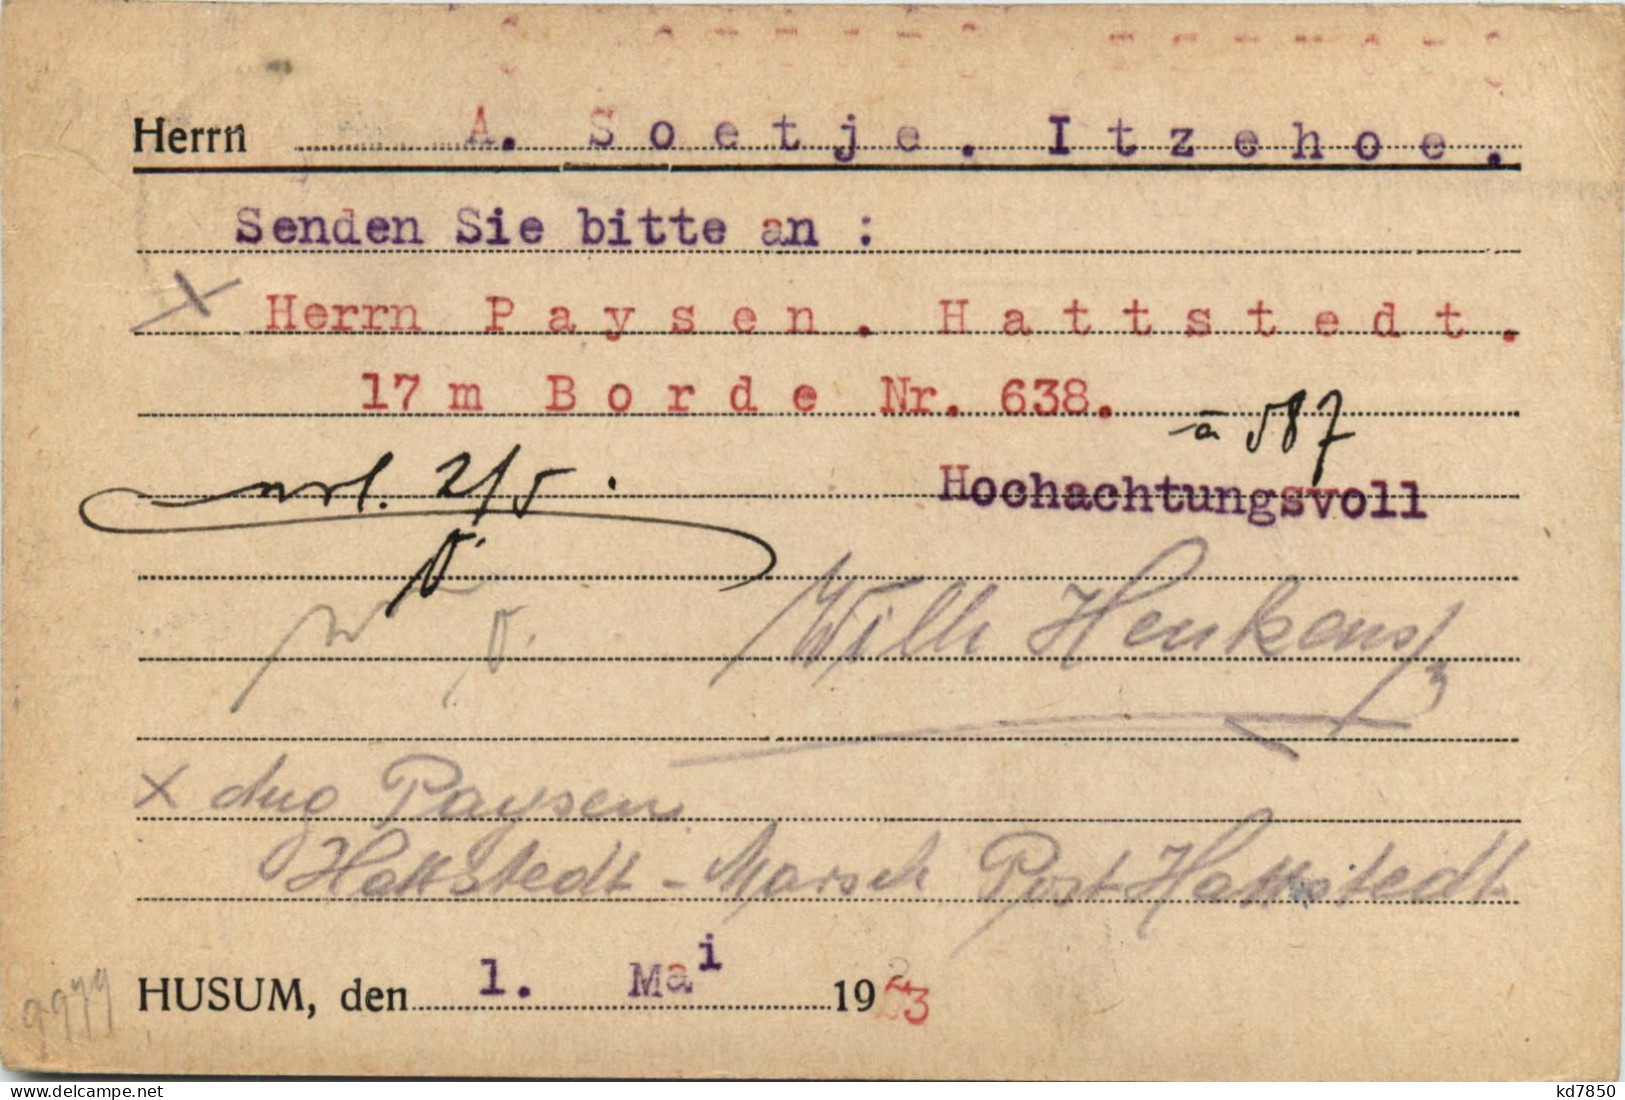 Herrn A. Soetje. Itzehoe.
Senden Sie bitte an :
X Herrn Paysen. Hattstedt.
17 m Borde Nr. 638.
à 587
2/5.
Hochachtungsvoll
Wilh Henkens
x Aug Paysen
Hattstedt - Marsch Post Hattstedt
HUSUM, den 1. Mai 1923
9979
www.delcampe.net
kd7850